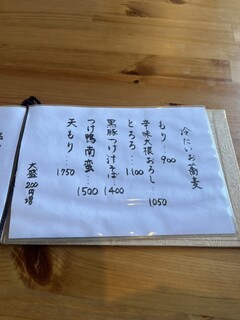 冷たいお蕎麦
もり… 900
辛味大根おろし… 1050
とろろ… 1100
黒豚つけ汁そば… 1400
つけ鴨南蛮… 1500
天もり… 1750
大盛200円増